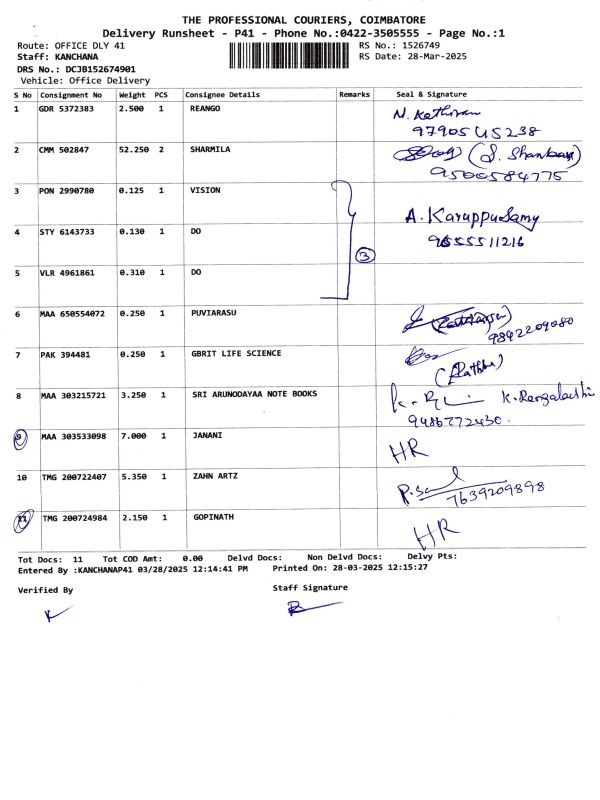 THE PROFESSIONAL COURIERS, COIMBATORE
Delivery Runsheet - P41 - Phone No.:0422-3505555 - Page No.:1
Route: OFFICE DLY 41 RS No.: 1526749
Staff: KANCHANA RS Date: 28-Mar-2025
DRS No.: DCJB152674901
Vehicle: Office Delivery
S No Consignment No Weight PCS Consignee Details Remarks Seal & Signature
1 GDR 5372383 2.500 1 REANGO
9790545238
2 CMM 502847 52.250 2 SHARMILA
9500584775
3 PON 2990780 0.125 1 VISION
A. Karuppusamy
4 STY 6143733 0.130 1 DO
9655511216
3
5 VLR 4961861 0.310 1 DO
6 MAA 650554072 0.250 1 PUVIARASU
9892209080
7 PAK 394481 0.250 1 GBRIT LIFE SCIENCE
8 MAA 303215721 3.250 1 SRI ARUNODAYAA NOTE BOOKS
9486772430.
9 MAA 303533098 7.000 1 JANANI
HR
10 TMG 200722407 5.350 1 ZAHN ARTZ
7639209898
11 TMG 200724984 2.150 1 GOPINATH
HR
Tot Docs: 11 Tot COD Amt: 0.00 Delvd Docs: Non Delvd Docs: Delvy Pts:
Entered By :KANCHANAP41 03/28/2025 12:14:41 PM Printed On: 28-03-2025 12:15:27
Verified By Staff Signature